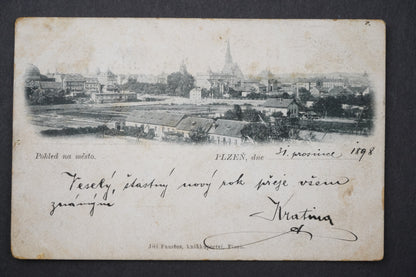 Pohled na město. PLZEŇ, dne 31. prosince 1898
Veselý, štastný nový rok přeje všem
známým
Kratina
Jiří Faustus, knihkupectví, Plzeň.